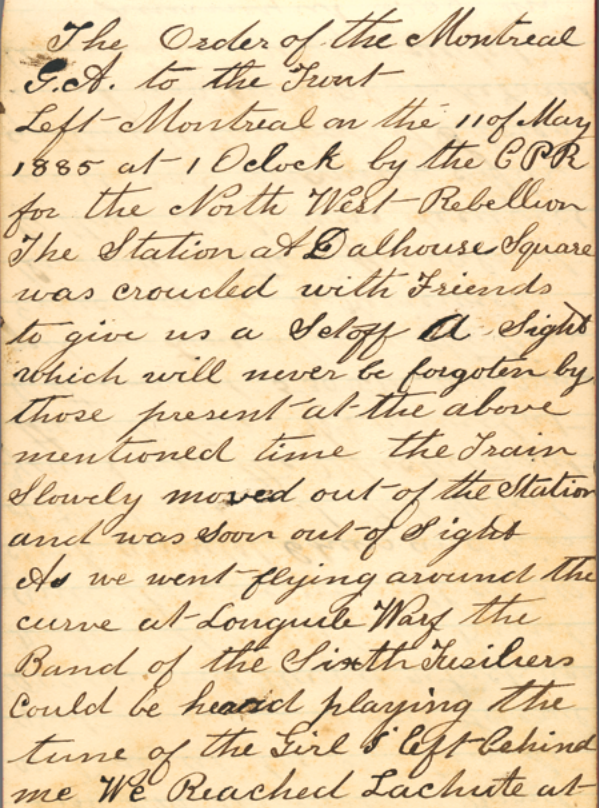 The Order of the Montreal
G.A. to the Front
Left Montreal on the 11 of May
1885 at 1 Oclock by the CPR
for the North West Rebellion
The Station at Dalhouse Square
was crouded with Friends
to give us a Setoff A Sight
which will never be forgoten by
those present at the above
mentioned time the Train
Slowely moved out of the Station
and was soon out of Sight
As we went flying around the
curve at Longuile Warf the
Band of the Sixth Fusiliers
Could be heard playing the
tune of the Girl I left behind
me We Reached Lachute at